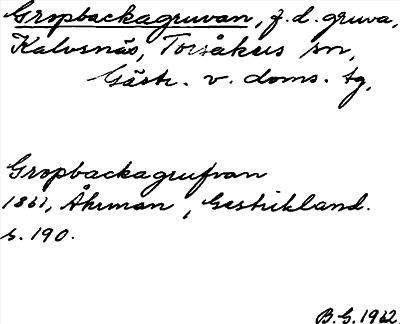 Gropbackagruvan, f.d. gruva,
Kalvsnäs, Torsåkers sn,
Gästr. v. doms. tg,
Gropbackagrufvan
1861, Åhrman, Gestrikland.
s. 190.
B.G. 1962.